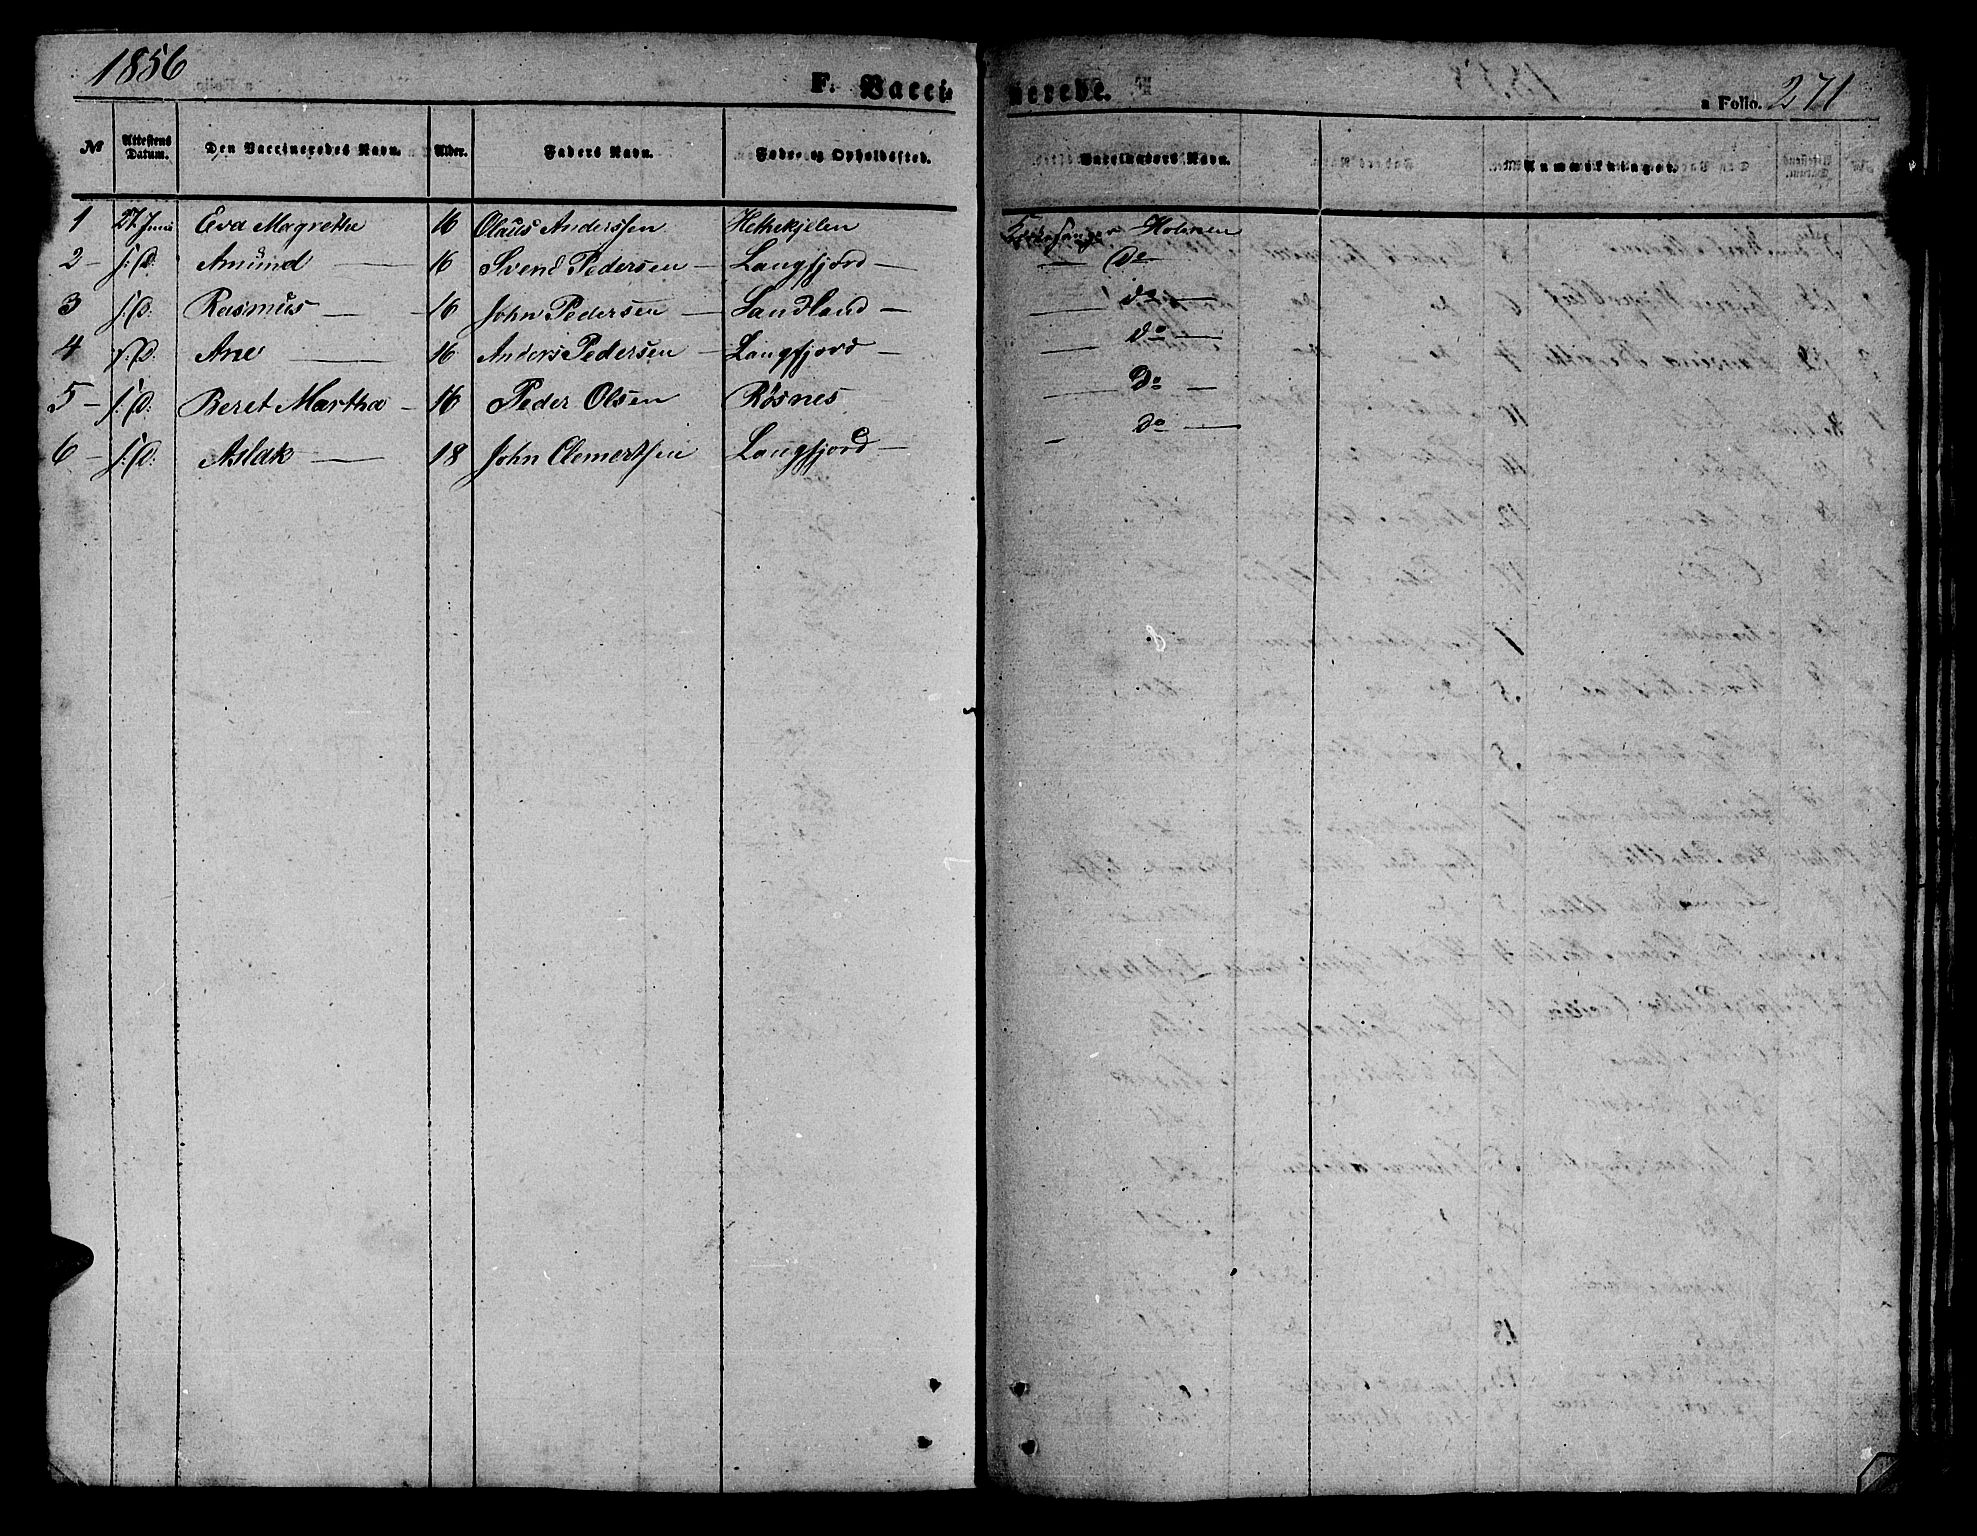 1856
F. Vacci-
nerede.
a Folio. 271
№ Attestens Datum. Den Vaccineredes Navn. Alder. Faders Navn. Føde- og Opholdssted. Vaccinators Navn. Anmærkninger.
1 27 Juni Eva Magrethe 16 Olaus Anderssen Hettekjelen Kirkesanger Holmen
2 – s: D: Amund — 16 Svend Pedersen — Langfjord — — Do
3 s: D: Rasmus — 16 John Pedersen — Sandland — — do —
4 s: D: Ane — 16 Anders Pedersen — Langfjord — — do —
5 – s: D: Beret Martha — 16 Peder Olsen Røsnes — — Do —
6 – s: D: Aslak — 18 John Clemertsen Langfjord — — do —